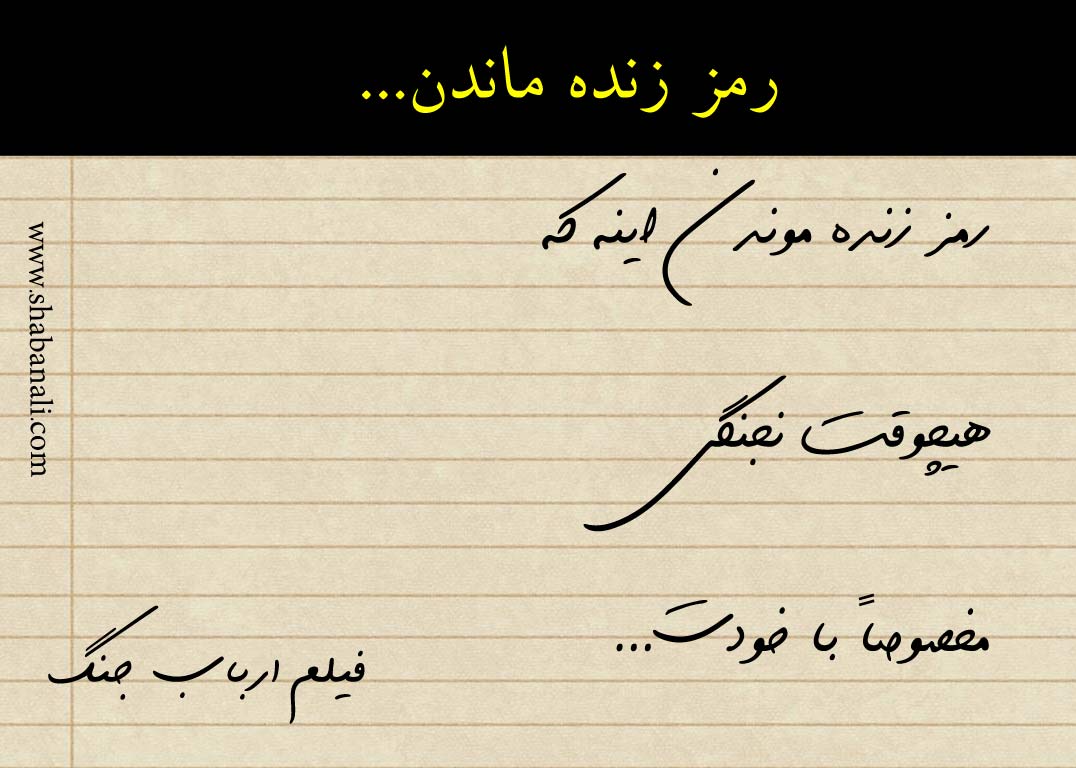 رمز زنده ماندن...
رمز زنده موندن اینه که
هیچوقت نجنگی
مخصوصاً با خودت...
فیلم ارباب جنگ
www.shabanali.com